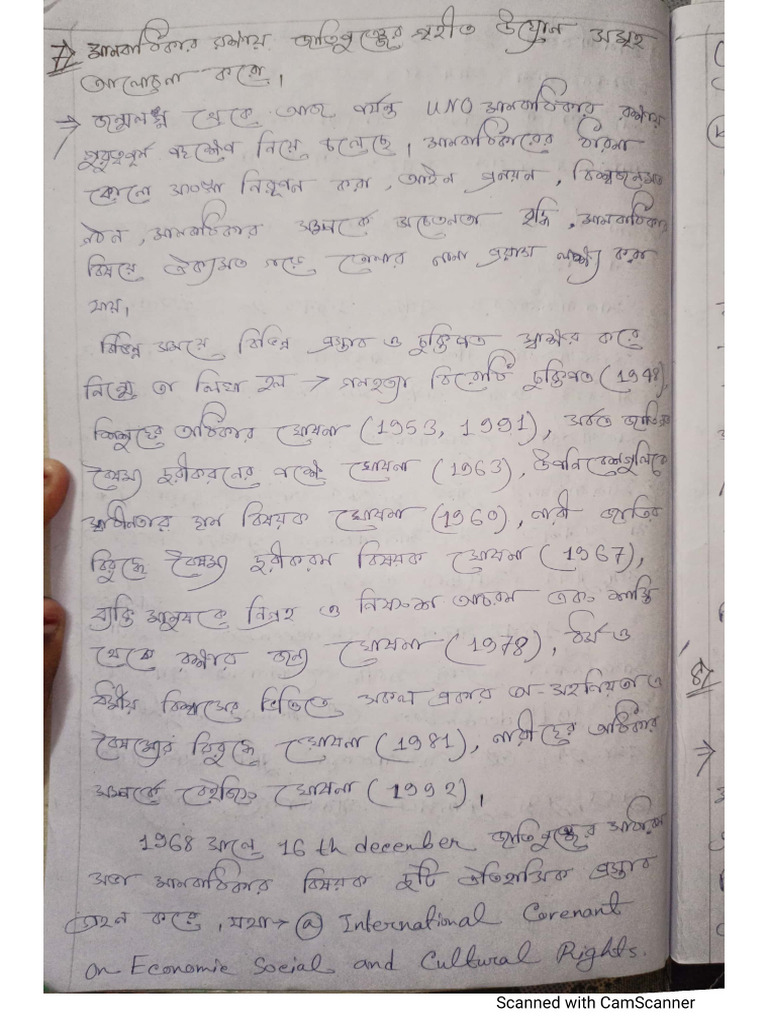 7) মানবাধিকার রক্ষায় জাতিপুঞ্জের গৃহীত উদ্যোগ সমূহ
আলোচনা করো।
⇒ জন্মলগ্ন থেকে আজ পর্যন্ত UNO মানবাধিকার রক্ষায়
গুরুত্বপূর্ণ পদক্ষেপ নিয়ে চলেছে। মানবাধিকারের ধারনা
কোনো সংজ্ঞা নিরূপন করা, আইন প্রনয়ন, বিশ্বজনমত
গঠন, মানবাধিকার সম্পর্কে সচেতনতা বৃদ্ধি, মানবাধিকার
বিষয়ে ঐক্যমত গড়ে তোলার নানা প্রয়াস লক্ষ্য করা
যায়।
বিভিন্ন সময়ে বিভিন্ন প্রস্তাব ও চুক্তিপত্র স্বাক্ষর করে
নিম্নে তা লিখা হল → গনহত্যা বিরোধি চুক্তিপত্র (1948),
শিশুদের অধিকার ঘোষনা (1953, 1991), সর্বত জাতিগত
বৈষম্য দূরীকরনের পক্ষে ঘোষনা (1963), উপনিবেশগুলিকে
স্বাধীনতার দান বিষয়ক ঘোষনা (1960), নারী জাতির
বিরুদ্ধে বৈষম্য দূরীকরন বিষয়ক ঘোষনা (1967),
ব্যক্তি মানুষকে নিগ্রহ ও নৃশংস আচরন এবং শাস্তি
থেকে রক্ষার জন্য ঘোষনা (1978), ধর্ম ও
ধর্মীয় বিশ্বাসের ভিত্তিতে সকল প্রকার অ-সহনিয়তা ও
বৈষম্যের বিরুদ্ধে ঘোষনা (1981), নারীদের অধিকার
সম্পর্কে বেইজিং ঘোষনা (1992),
1968 সালে 16 th december জাতিপুঞ্জের সাধারন
সভা মানবাধিকার বিষয়ক দুটি ঐতিহাসিক প্রস্তাব
গ্রহন করে, যথা → ⓐ International Corenant
on Economic Social and Cultural Rights.
8)
⇒
Scanned with CamScanner